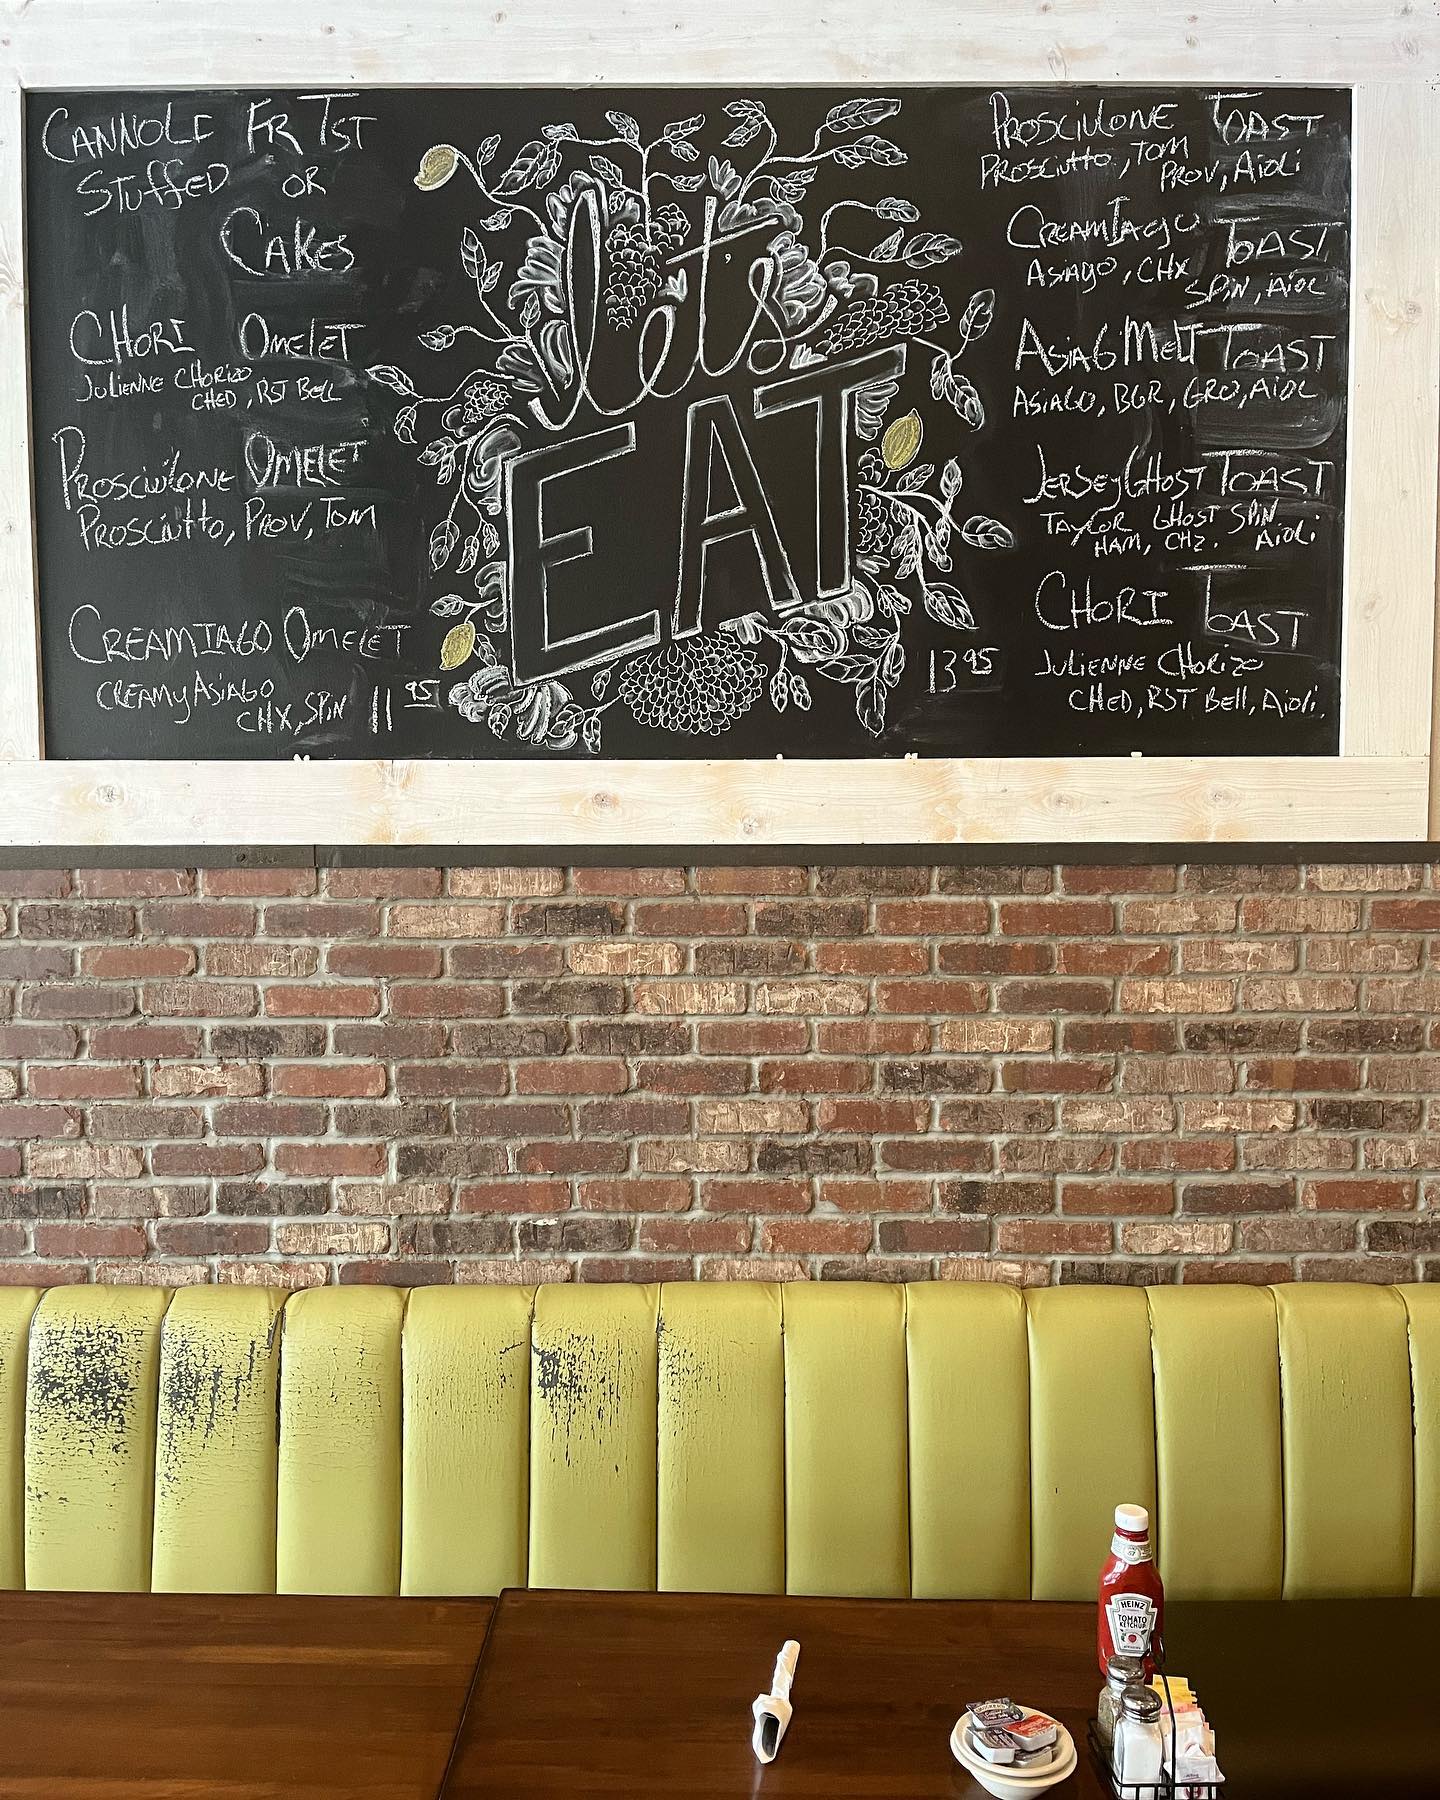 CANNOLI FR TST
STUFFED OR
CAKES
CHORI OMELET
JULIENNE CHORIZO
CHED, RST BELL
PROSCIULONE OMELET
PROSCIUTTO, PROV, TOM
CREAMIAGO OMELET
CREAMY ASIAGO
CHX, SPIN 11 95
let's
EAT
PROSCIULONE TOAST
PROSCIUTTO, TOM
PROV, AIOLI
CREAMIAGO TOAST
ASIAGO, CHX
SPIN, AIOL
ASIAG MELT TOAST
ASIAGO, BGR, GRO, AIOL
JERSEY GHOST TOAST
TAYLOR GHOST SPIN
HAM, CHZ. AIOLI
CHORI TOAST
JULIENNE CHORIZO
CHED, RST BELL, AIOLI.
13 95
HEINZ
TOMATO
KETCHUP